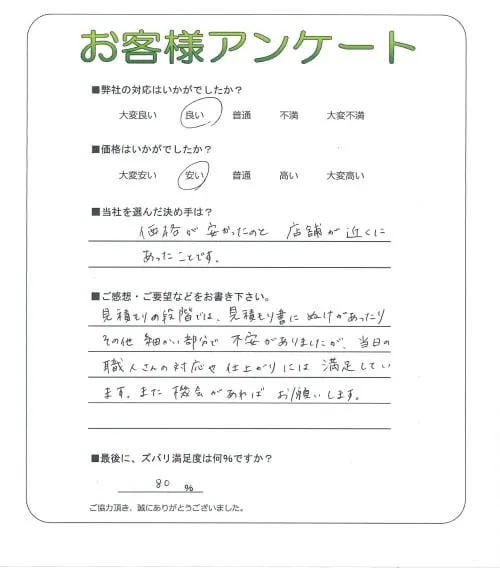 お客様アンケート
■弊社の対応はいかがでしたか？
大変良い 良い 普通 不満 大変不満
■価格はいかがでしたか？
大変安い 安い 普通 高い 大変高い
■当社を選んだ決め手は？
価格が安かったのと 店舗が近くに
あったことです。
■ご感想・ご要望などをお書き下さい。
見積もりの段階では、見積もり書にぬけがあったり
その他 細かい部分で 不安がありましたが、当日の
職人さんの対応や仕上がりには 満足してい
ます。また 機会があれば お願いします。
■最後に、ズバリ満足度は何%ですか？
80 %
ご協力頂き、誠にありがとうございました。